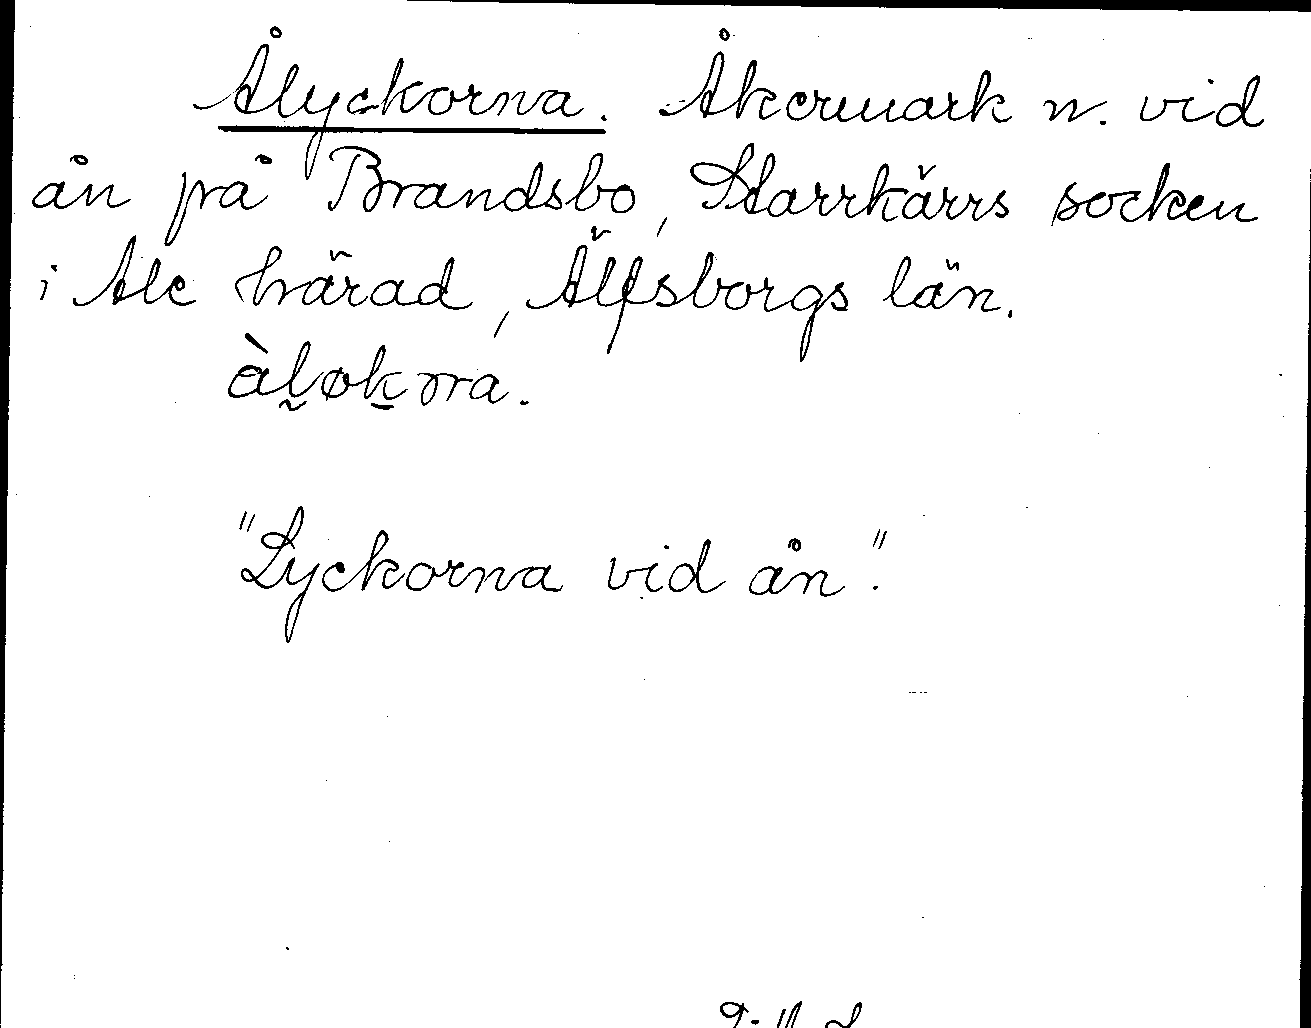 Ålyckorna. Åkermark n. vid
ån på Brandsbo, Starrkärrs socken
i Ale härad, Älfsborgs län.
àl̰øḵrra.
"Lyckorna vid ån".